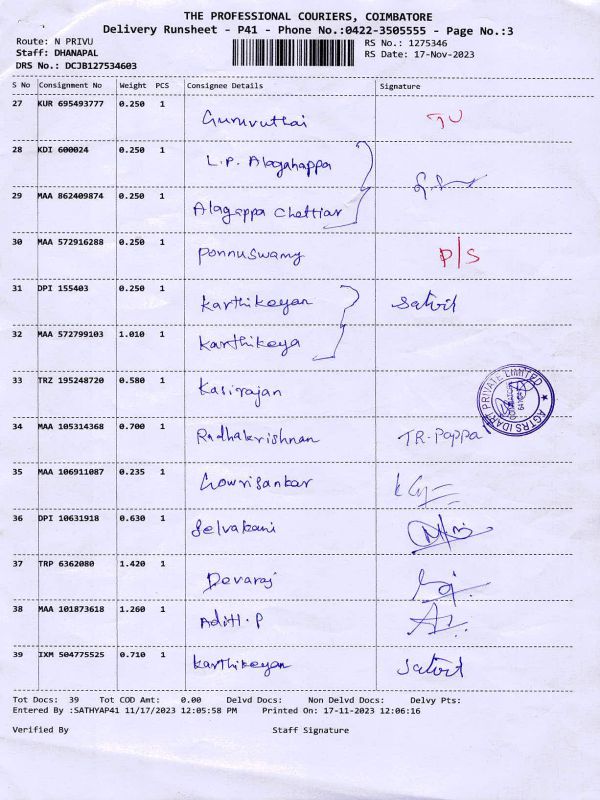 THE PROFESSIONAL COURIERS, COIMBATORE
Delivery Runsheet - P41 - Phone No.:0422-3505555 - Page No.:3
Route: N PRIVU
Staff: DHANAPAL
DRS No.: DCJB127534603
RS No.: 1275346
RS Date: 17-Nov-2023
S No Consignment No Weight PCS Consignee Details Signature
27 KUR 695493777 0.250 1 Guruvuthai
28 KDI 600024 0.250 1 L.P. Alagahappa
29 MAA 862409874 0.250 1 Alagappa Chettiar
30 MAA 572916288 0.250 1 Ponnuswamy P/S
31 DPI 155403 0.250 1 Karthikeyan
32 MAA 572799103 1.010 1 Karthikeya
33 TRZ 195248720 0.580 1 Kasirajan
AGTRS IDART PRIVATE LIMITED
34 MAA 105314368 0.700 1 Radhakrishnan TR. Pappa
35 MAA 106911087 0.235 1 Gowrisankar
36 DPI 10631918 0.630 1 Selvakani
37 TRP 6362080 1.420 1 Devaraj
38 MAA 101873618 1.260 1 Aditi.P
39 IXM 504775525 0.710 1 Karthikeyan
Tot Docs: 39 Tot COD Amt: 0.00 Delvd Docs: Non Delvd Docs: Delvy Pts:
Entered By :SATHYAP41 11/17/2023 12:05:58 PM Printed On: 17-11-2023 12:06:16
Verified By Staff Signature